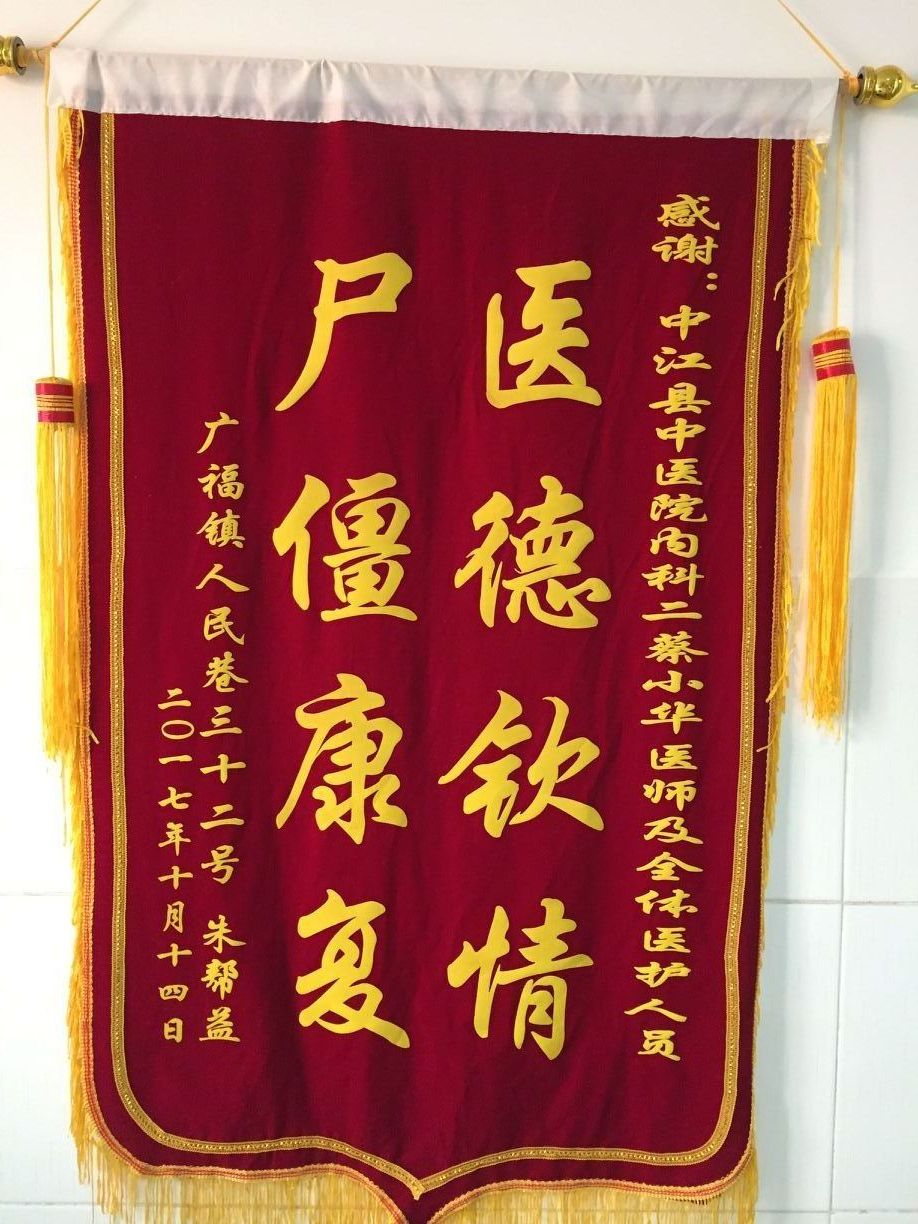 感谢：中江县中医院内科二蔡小华医师及全体医护人员
医德钦情
尸僵康复
广福镇人民巷三十二号 朱帮益
二〇一七年十月十四日